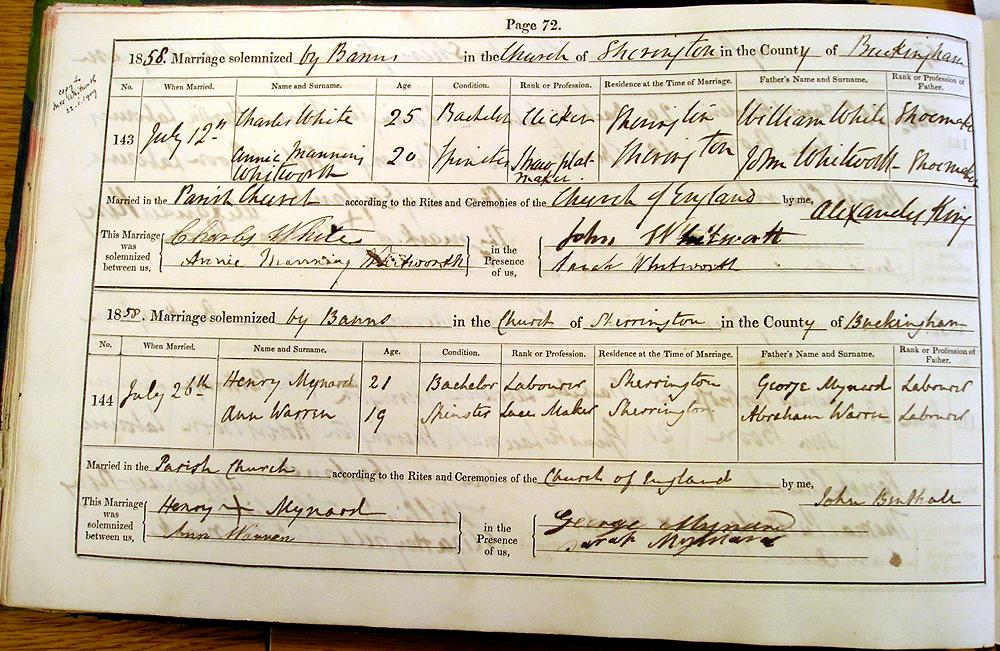 Page 72.
1858. Marriage solemnized by Banns in the Church of Sherington in the County of Buckingham
No. When Married. Name and Surname. Age Condition. Rank or Profession. Residence at the Time of Marriage. Father's Name and Surname. Rank or Profession of Father.
143 July 12th Charles White 25 Bachelor Clicker Sherington William White Shoemaker
Annie Manning Whitworth 20 Spinster Straw plat-maker. Sherington John Whitworth Shoemaker
Married in the Parish Church according to the Rites and Ceremonies of the Church of England by me, Alexander King
This Marriage was solemnized between us, Charles White in the Presence of us, John Whitworth
Annie Manning Whitworth Sarah Whitworth
1858. Marriage solemnized by Banns in the Church of Sherrington in the County of Buckingham
No. When Married. Name and Surname. Age. Condition. Rank or Profession. Residence at the Time of Marriage. Father's Name and Surname. Rank or Profession of Father.
144 July 26th Henry Mynard 21 Bachelor Labourer Sherrington George Mynard Labourer
Ann Warren 19 Spinster Lace Maker Sherrington Abraham Warren Labourer
Married in the Parish Church according to the Rites and Ceremonies of the Church of England by me, John Benthall
This Marriage was solemnized between us, Henry + Mynard in the Presence of us, George Mynard
Ann Warren Sarah Mynard